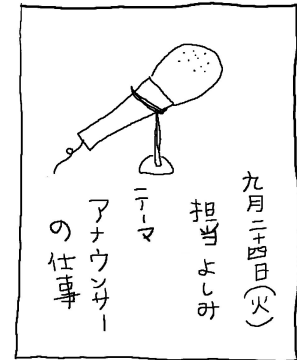 九月二十四日(火)
担当 よしみ
テーマ
アナウンサー
の仕事